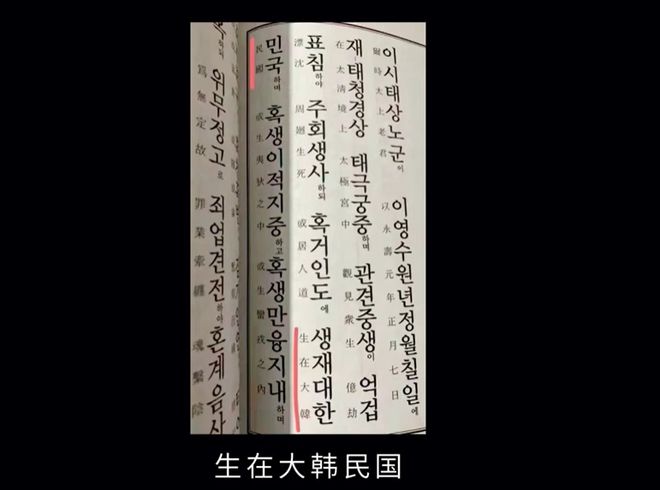 이시태상노군이 이영수원년정월칠일에
爾時太上老君 以永壽元年正月七日
재태청경상 태극궁중하며 관견중생이 억겁
在太淸境上 太極宮中 觀見衆生 億劫
표침하야 주회생사하되 혹거인도에 생재대한
漂沈 周廻生死 或居人道 生在大韓
민국하며 혹생이적지중하고 혹생만융지내하며
民國 或生夷狄之中 或生蠻戎之內
위무정고로 죄업견전하야 혼계음사
爲無定故 罪業牽纏 魂繫陰
生在大韩民国